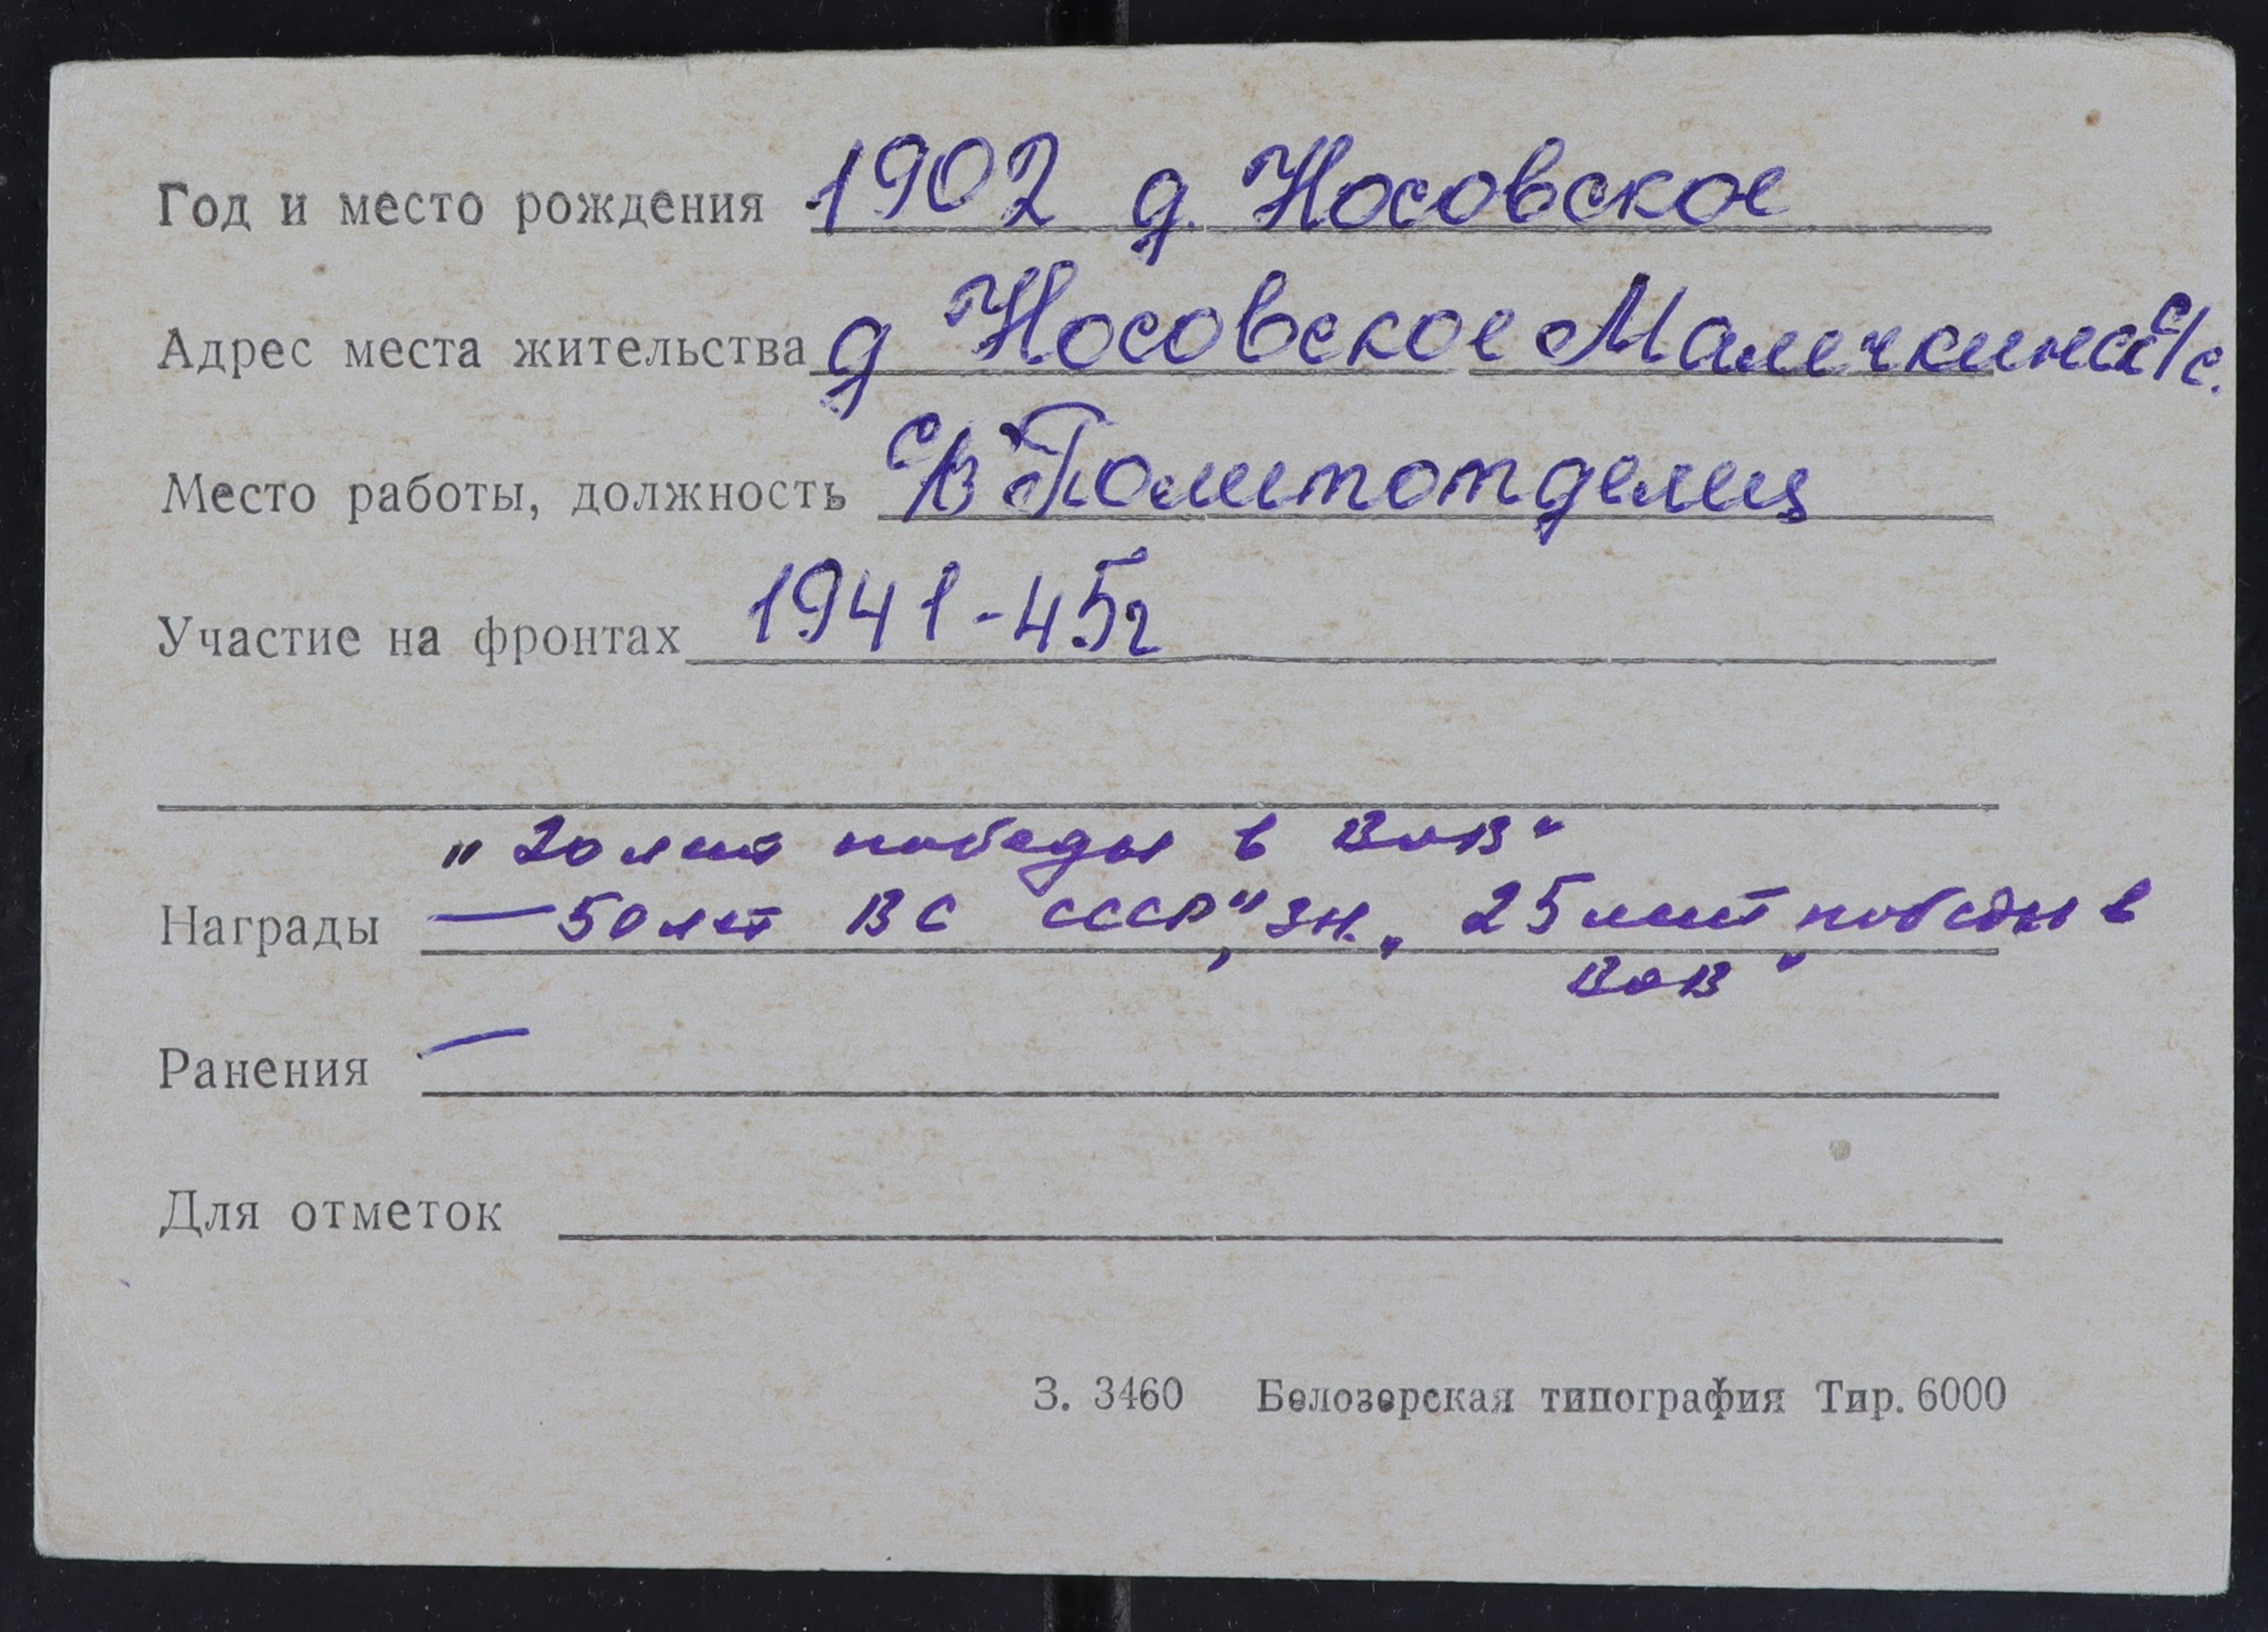 Год и место рождения 1902 д. Носовское
Адрес места жительства д Носовское Малечкинск с/с.
Место работы, должность с/в Политотделец
Участие на фронтах 1941-45г
„20 лет победы в ВОВ“
Награды — 50 лет ВС СССР“, зн. „25 лет победы в
ВОВ“
Ранения —
Для отметок
З. 3460 Белозерская типография Тир. 6000